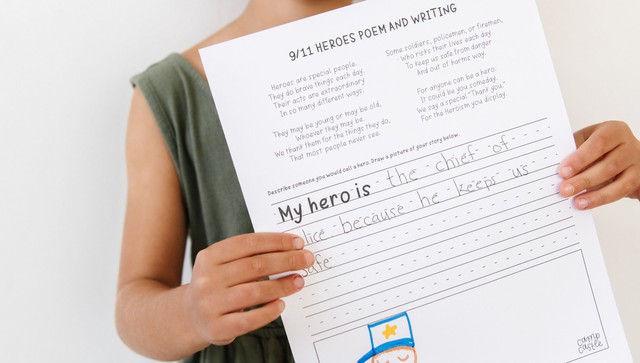 9/11 HEROES POEM AND WRITING
Heroes are special people.
They do brave things each day.
Their acts are extraordinary
In so many different ways.
They may be young or may be old,
Whoever they may be.
We thank them for the things they do,
That most people never see.
Some soldiers, policemen, or firemen,
Who risk their lives each day.
To keep us safe from danger
And out of harms way.
For anyone can be a hero.
It could be you someday.
We say a special "Thank you,"
For the Heroism you display.
Describe someone you would call a hero. Draw a picture of your story below.
My hero is the chief of
lice because he keeps us
safe
camp
castle